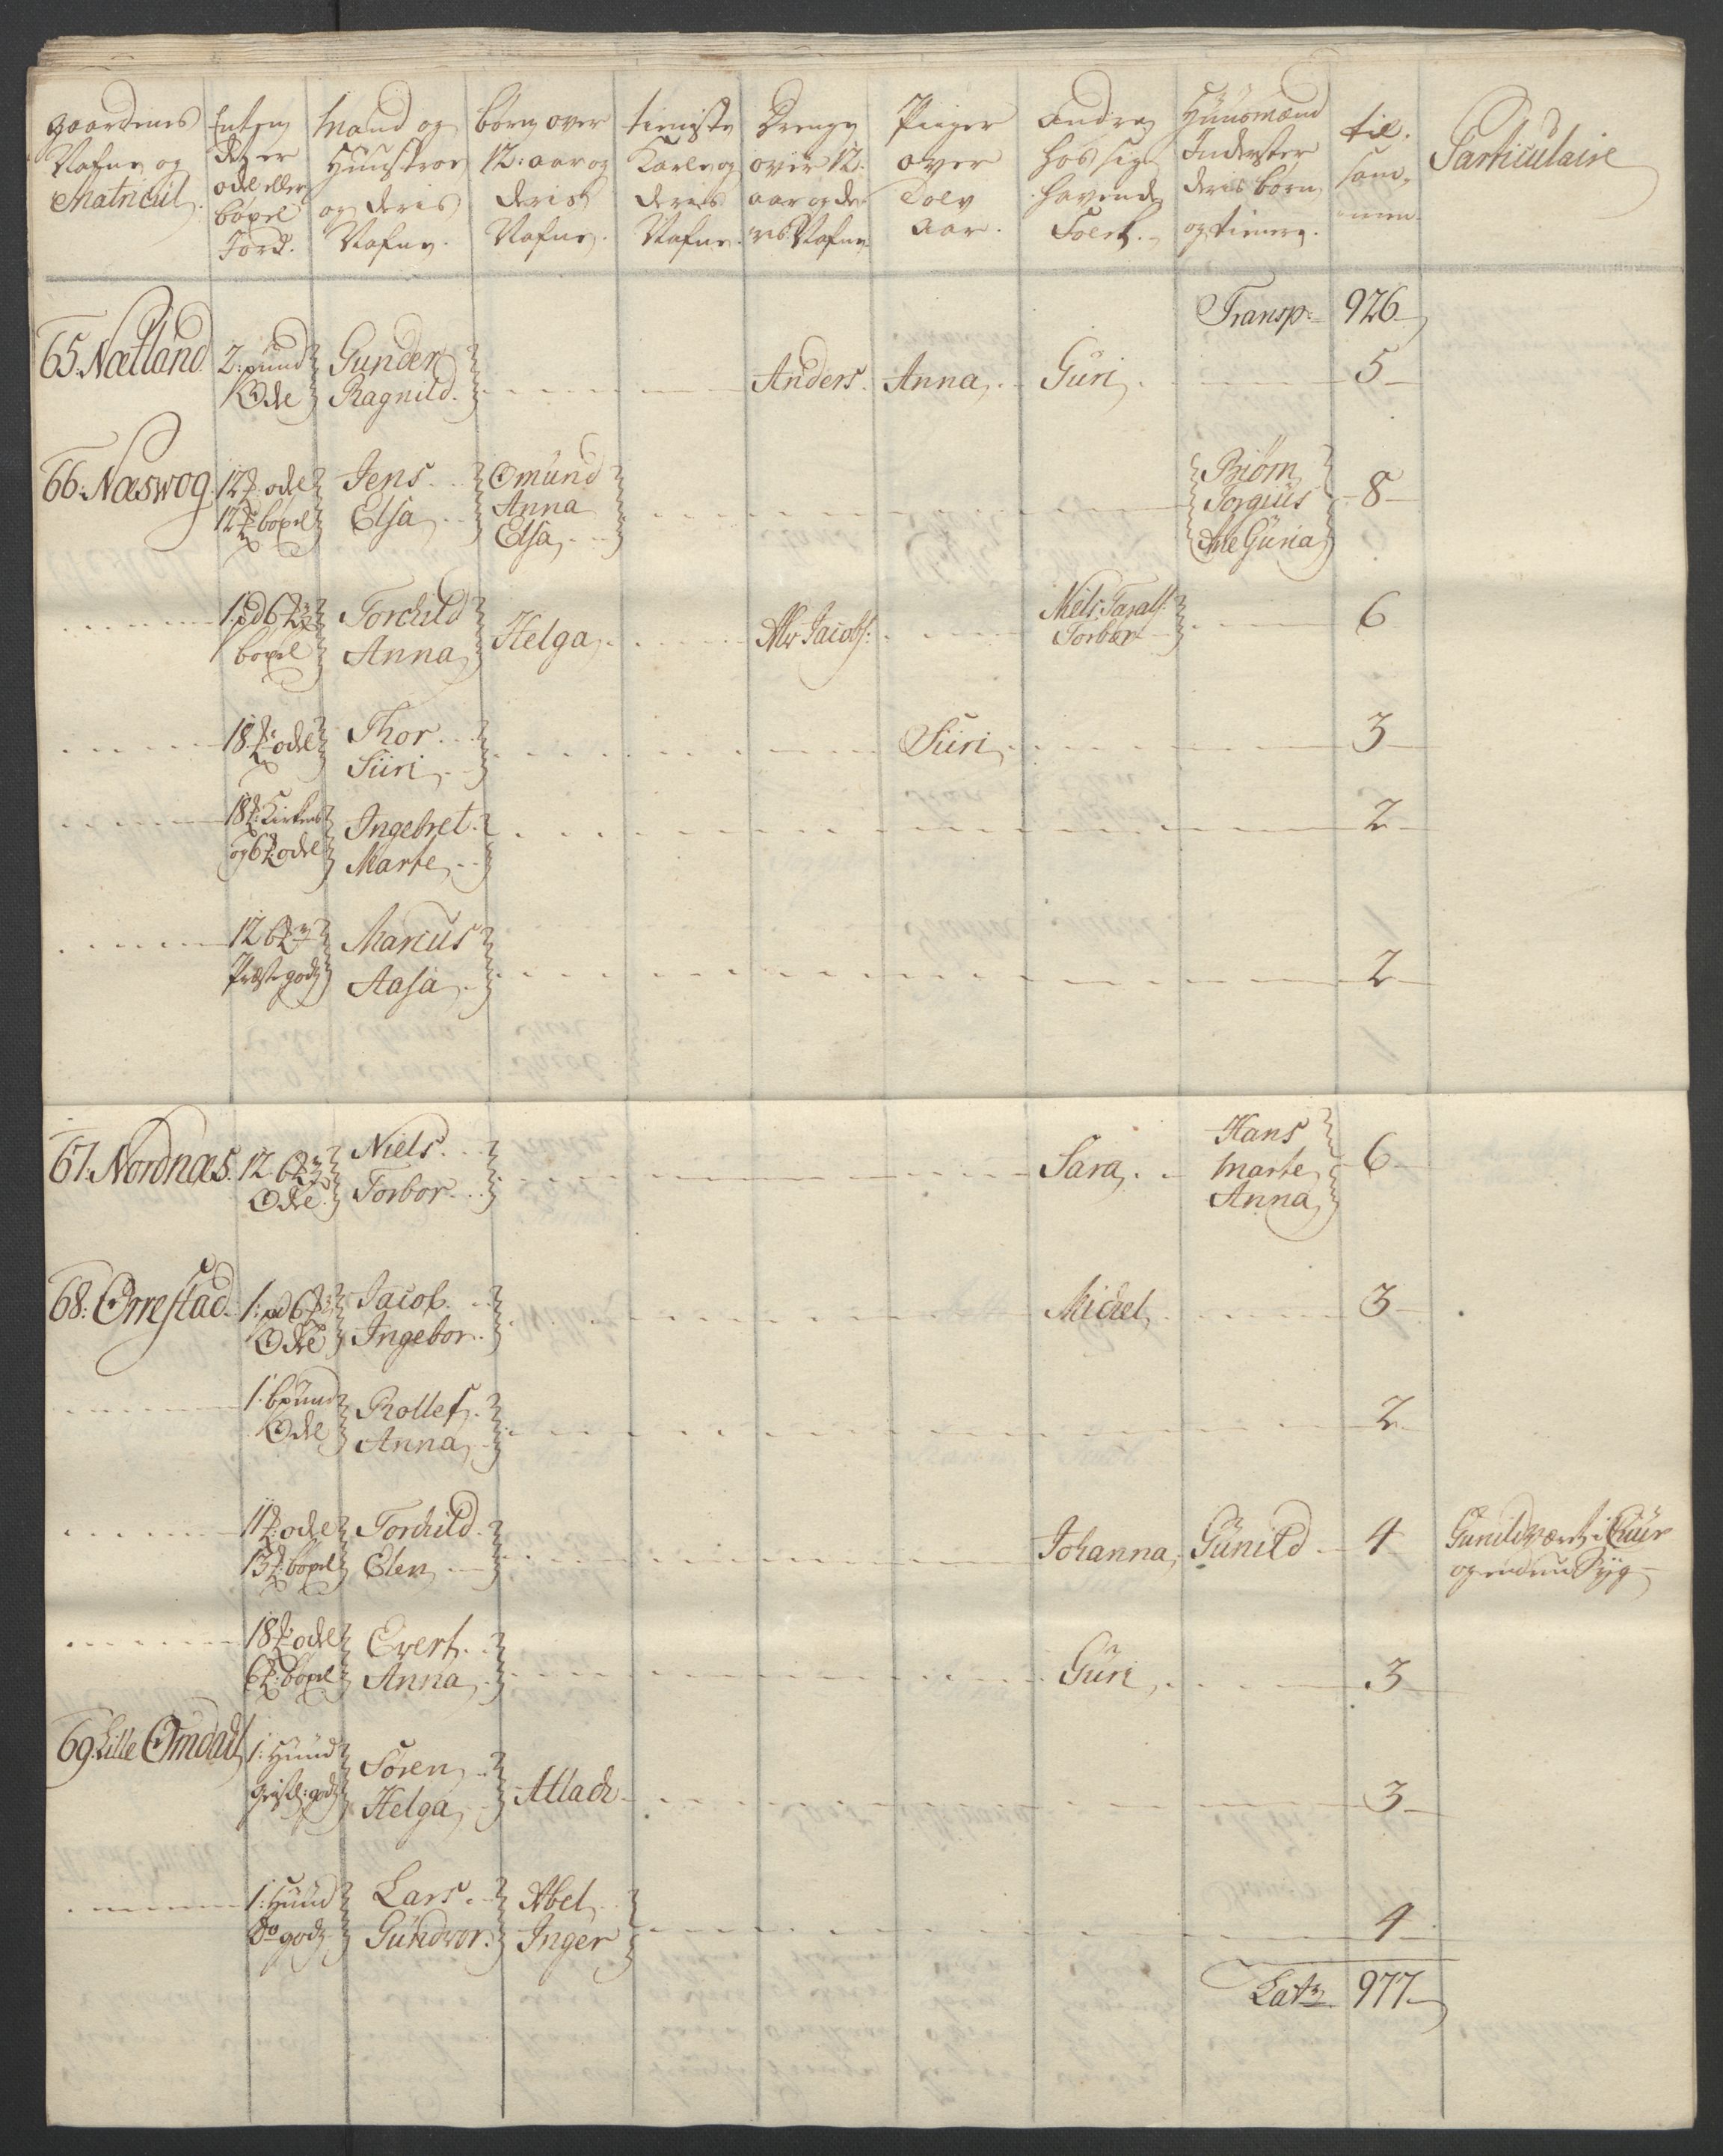 gaardenes Nafne og Matricul.
Enten det er odel eller böxel Jord.
Mand og Huustroe og deris Nafne.
börn over 12: aar og deris Nafne.
tieniste Karle og deris Nafne.
Drenge over 12: aar og deris Nafne
Piiger over Tolv Aar.
Andre hos sig havende Folck.
Huusmænd Inderster deris börn og tienere.
til sammen.
Particulaire
Transp: 926
65. Nætland 2: pund Odel Gunder Ragnild Anders. Anna. Guri 5
66. Næswog 12 odel 12 böxel Jens Elsa Omund Anna Elsa Biörn Torgius Ane Guria 8
1 pd 6 böxel Torchild Anna Helga Alv Jacobs: Niels Taralf: Torbor 6
18 odel Thor Siiri Siiri 3
18 Kirkens og 6 odel Ingebret Marte 2
12 Præste godz Marcus Aasa 2
67. Nordnæs. 12 Odel Niels Torbor Sara Hans Marte Anna 6
68. Örrestad 1: pd 6 Odel Jacob Ingebor Michel 3
1: bpund Odel Rollef Anna 2
11 odel 13 böxel Torchild Elen Johanna Gunild 4 Gunild værk i Cuur og endnu Syg
18 odel 6 böxel Evert Anna Guri 3
69 Lille Omdal 1: Huud godz Sören Helga Atlach 3
1: Huud do godz Lars Gundvor Abel Inger 4
Lats 977